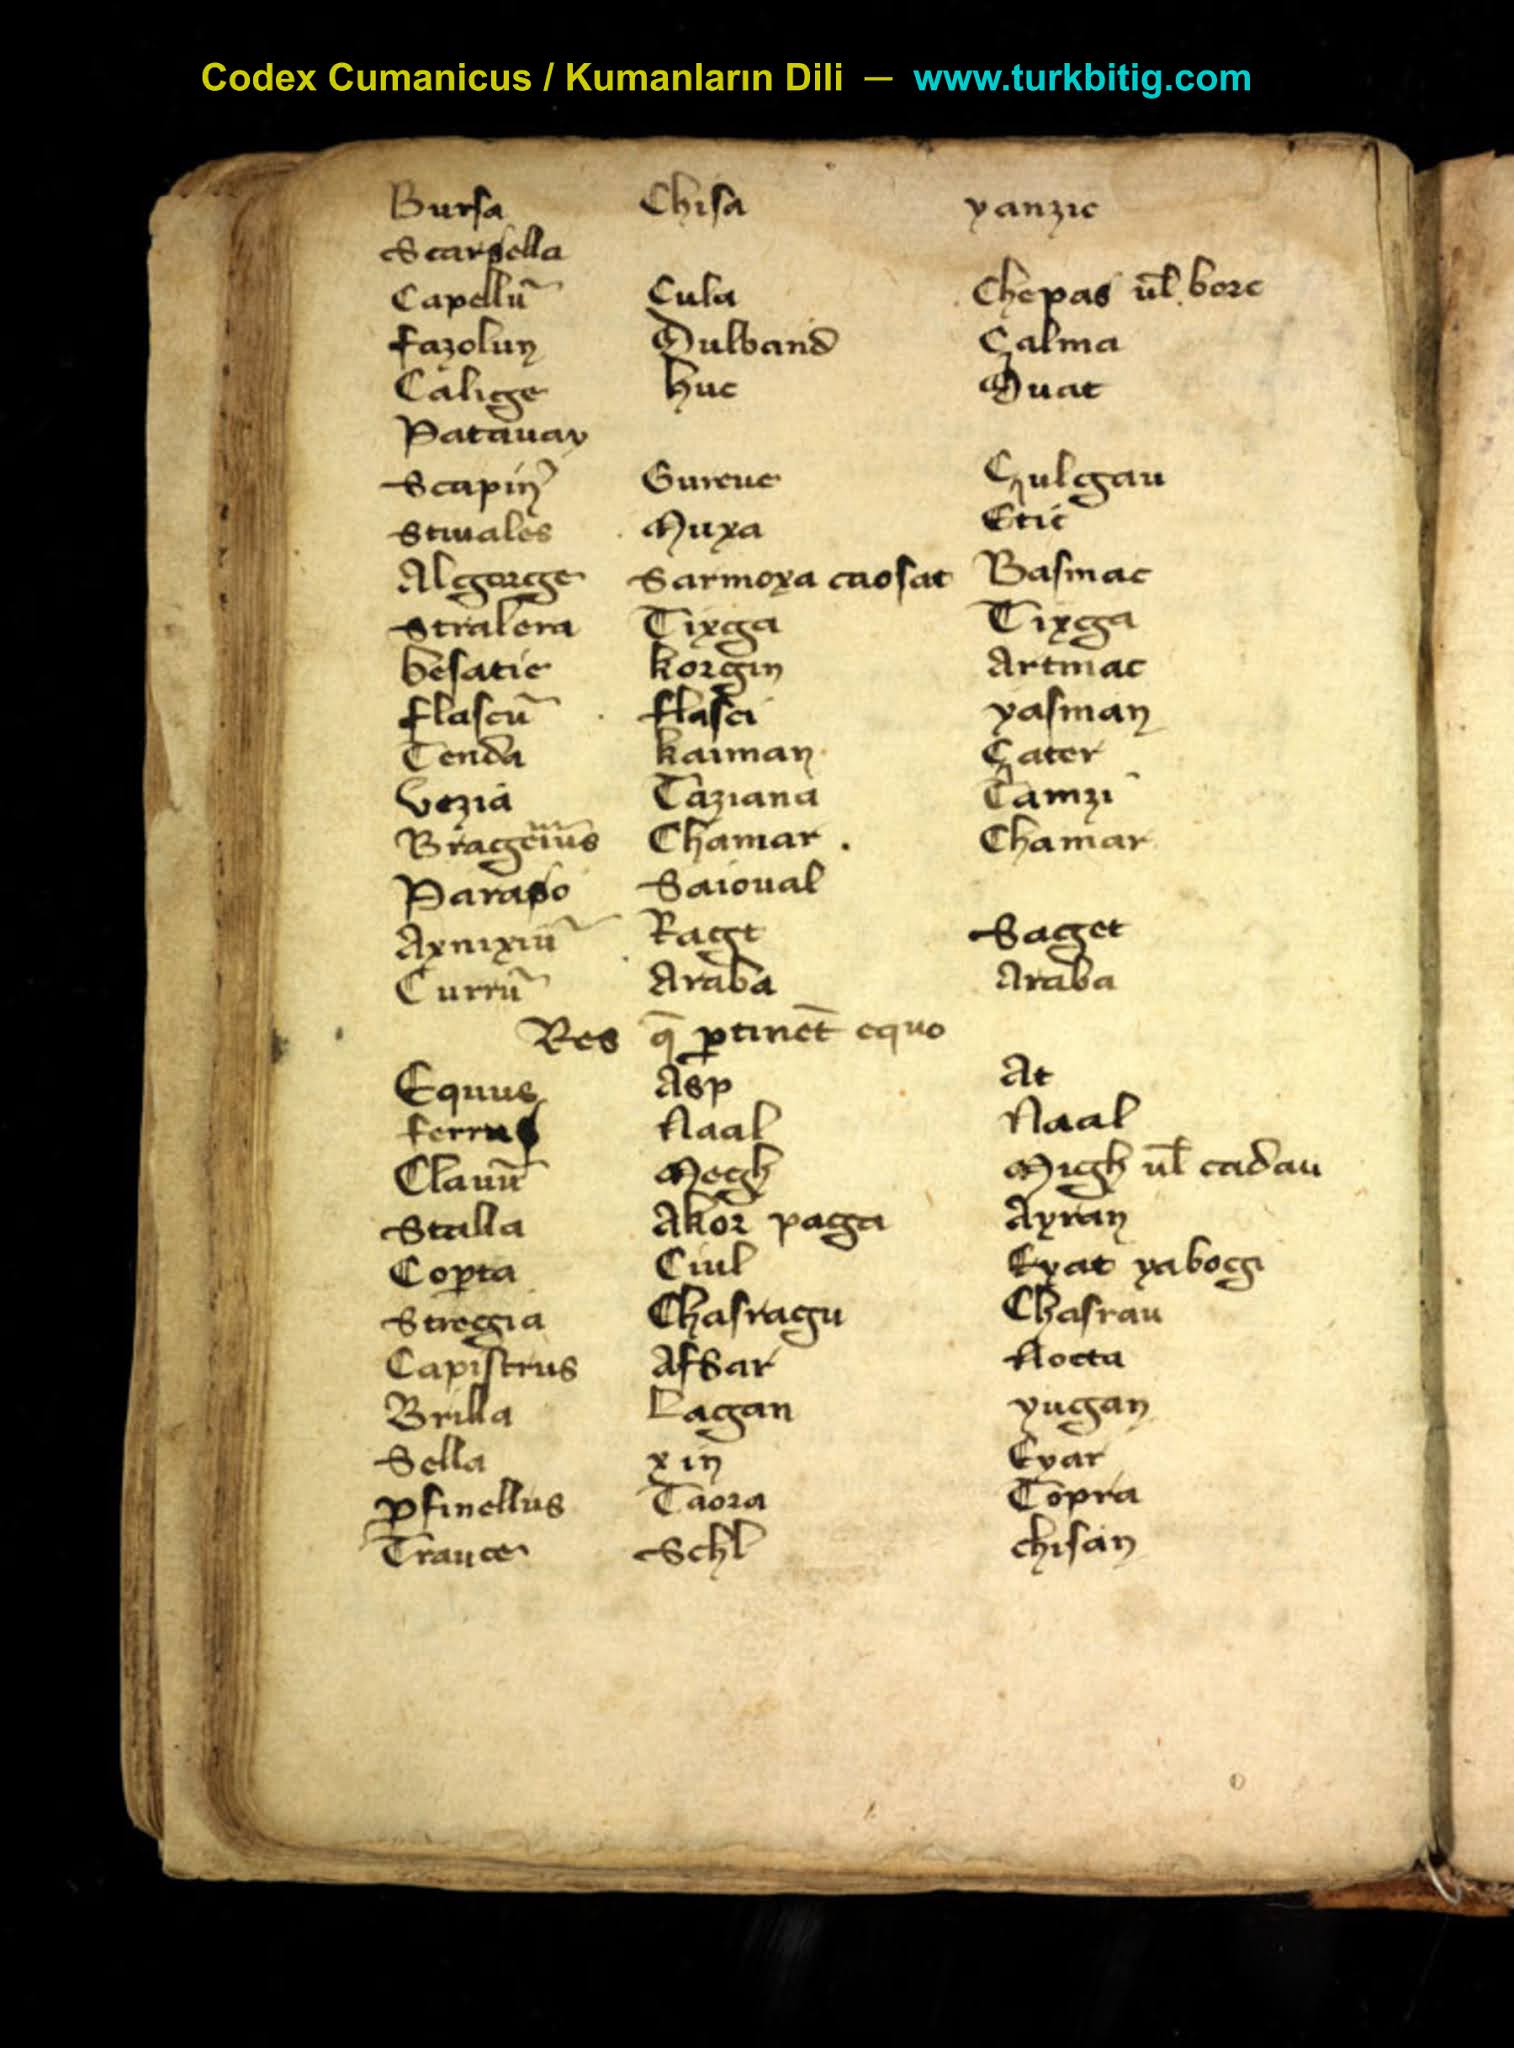 Codex Cumanicus / Kumanların Dili — www.turkbitig.com
Bursa Chisa yanzic
Scarsella
Capellũ Cula Chepas ul̃ borc
fazolun Dulband Çalma
Calige huc Quat
Patauay
Scapin̉ Gureue Çulgau
Stiuales Muxa Etic
Algorge Sarmoxa caosat Basmac
Stralera Tixga Tixga
besatie korgin Artmac
flascũ flasci yasman
Tenda kaiman Çater
Vezia Taziana Tamzi
Chamar Chamar
Paraso Saioual
Axnixiũ Ragt Saget
Currũ Araba Araba
Res q̄ ꝑtinet̄ equo
Equus Asp At
ferrus Naal Naal
Clauũ Megh Migh ul̃ cadau
Stalla Akor paga Ayran
Coꝑta Ciul Eyat yabogi
Stregia Chasragu Chasrau
Capistrus Afsar Nocta
Brilla Lagan yugan
Sella xin Eyar
ꝑfinellus Taora Topra
Schl chisan